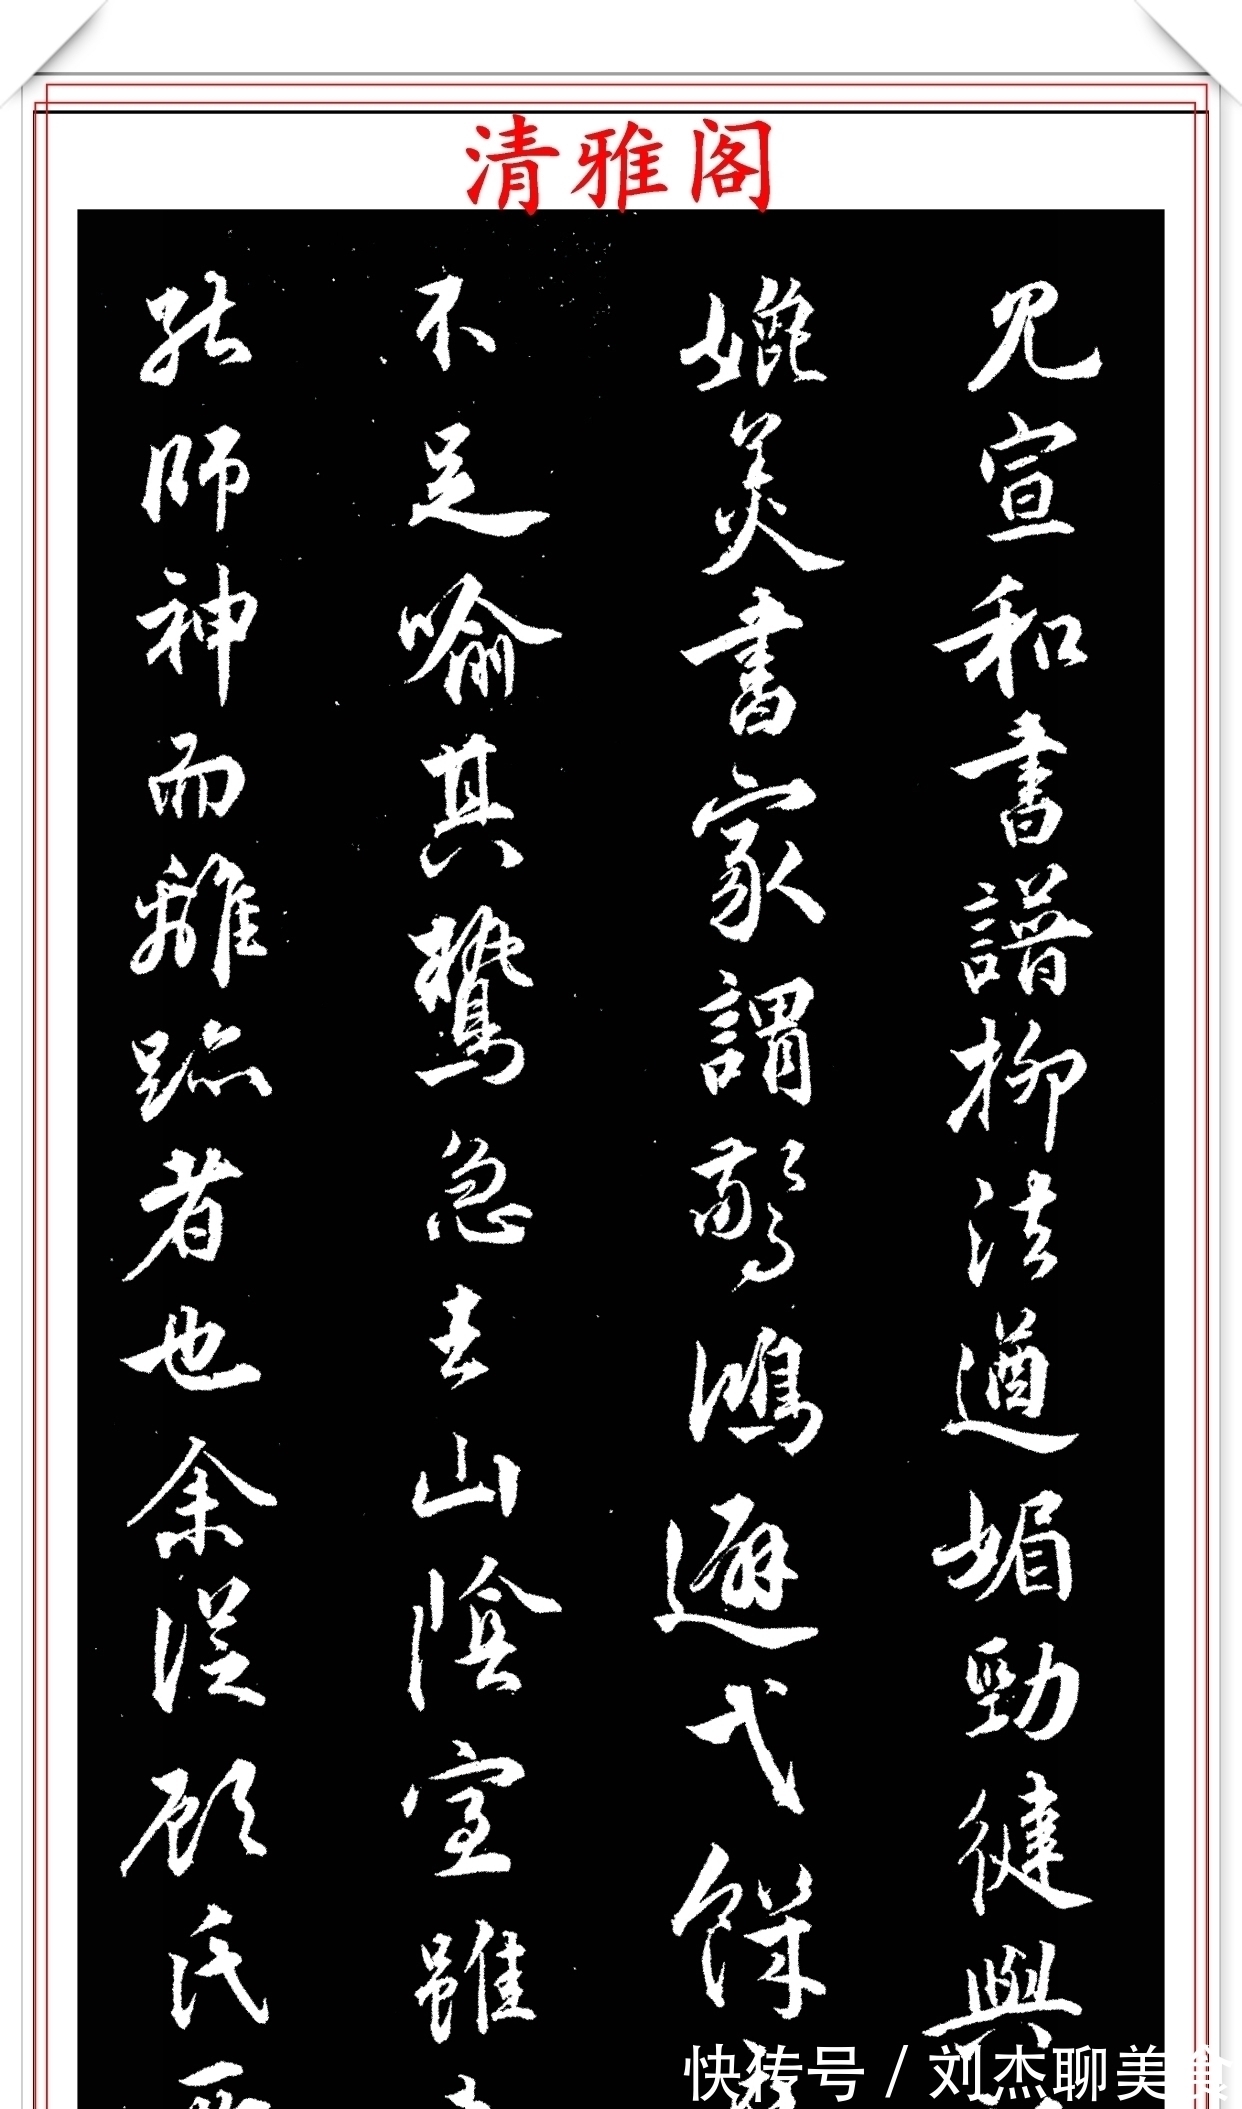 清雅阁
见宣和書譜柳法遒媚勁健與
媲美書家謂驚鴻避弋餓
不足喻其鷙急去山陰室雖
能師神而離跡者也余從顧氏
快传号 / 刘杰聊美食